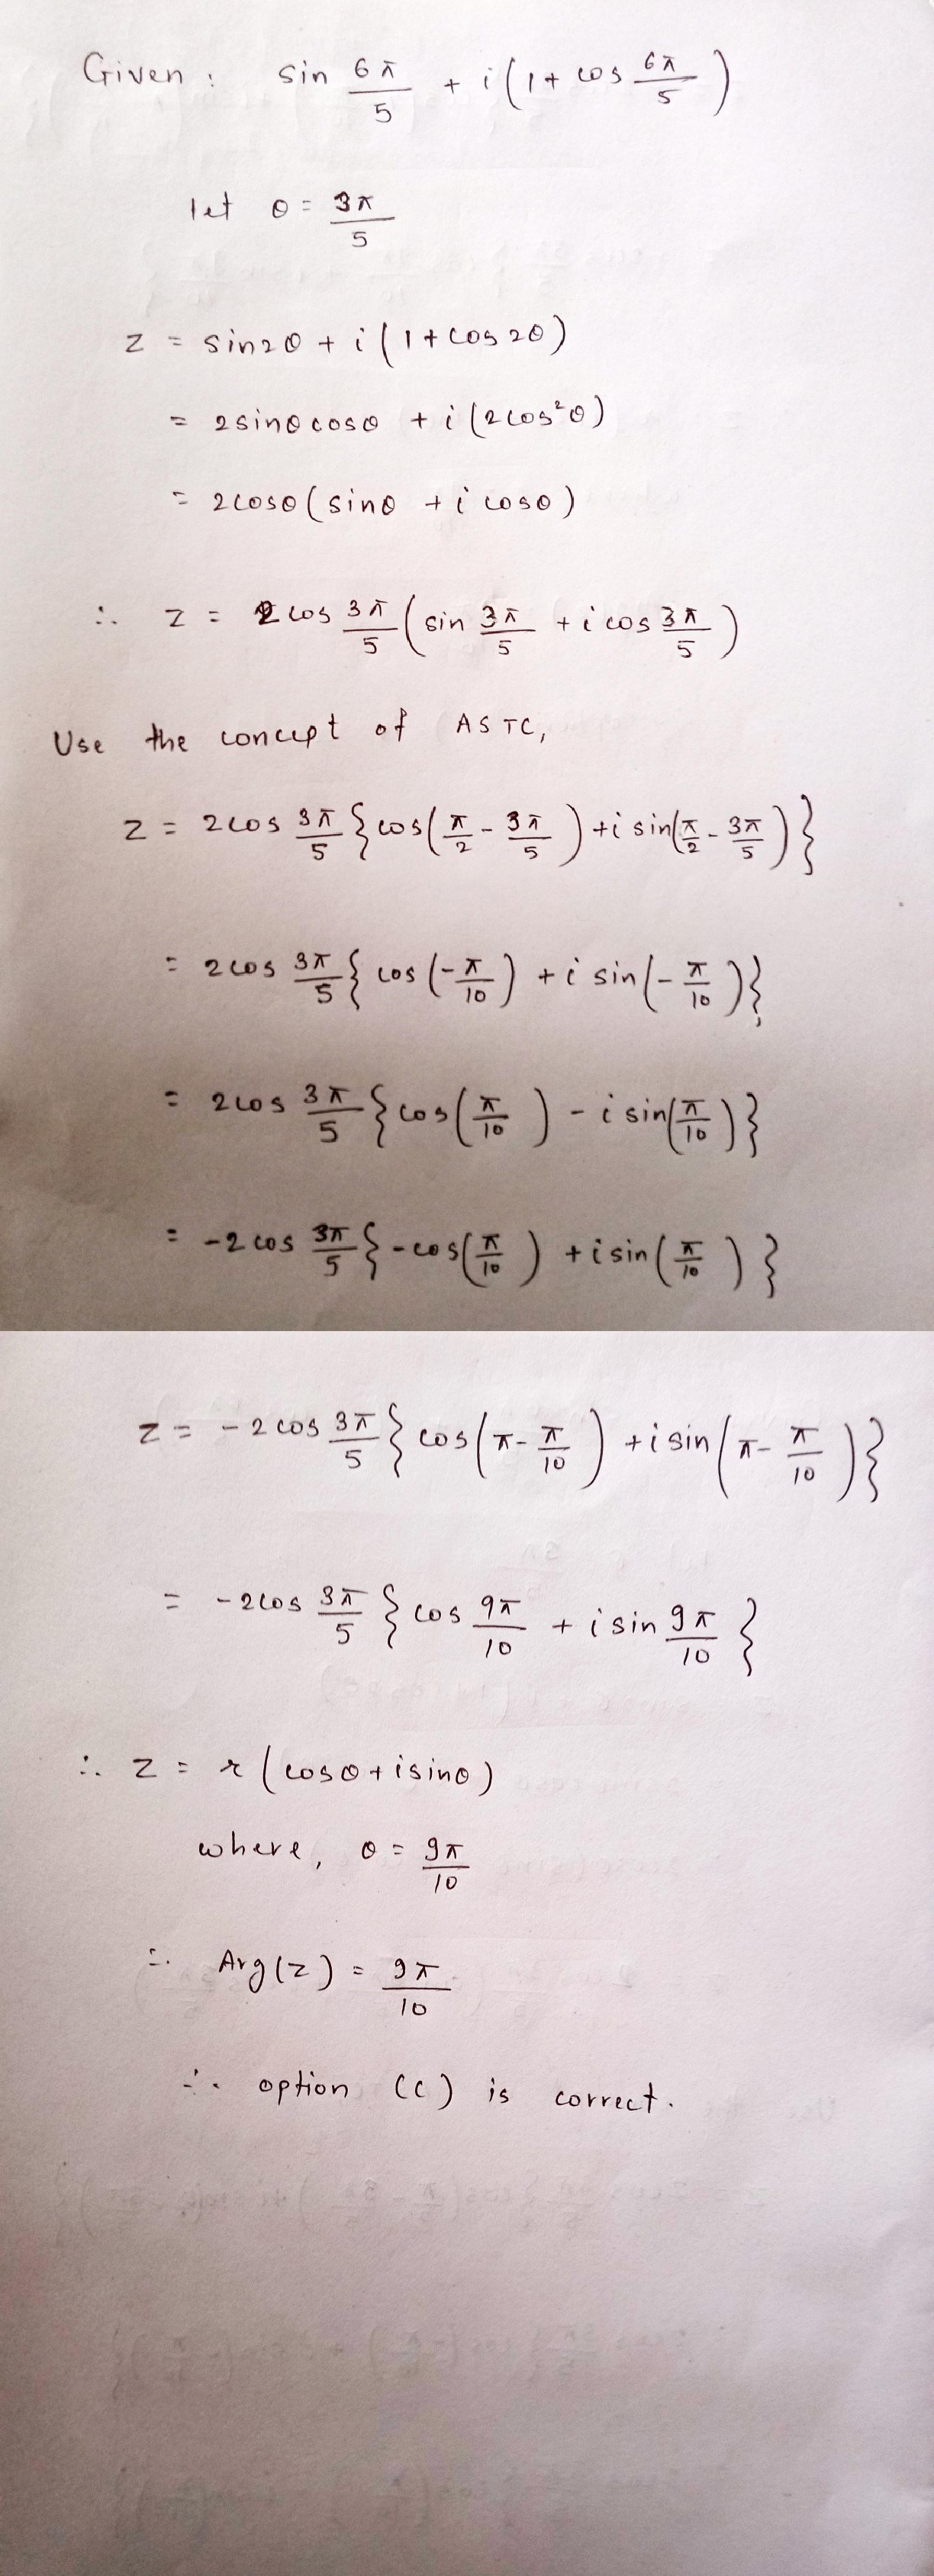 Given : sin 6π/5 + i(1 + cos 6π/5)
let θ = 3π/5
z = sin2θ + i(1 + cos 2θ)
= 2sinθ cosθ + i(2cos²θ)
= 2cosθ(sinθ + i cosθ)
∴ z = 2cos 3π/5 (sin 3π/5 + i cos 3π/5)
Use the concept of ASTC,
z = 2cos 3π/5 {cos(π/2 - 3π/5) + i sin(π/2 - 3π/5)}
= 2cos 3π/5 {cos(-π/10) + i sin(-π/10)}
= 2cos 3π/5 {cos(π/10) - i sin(π/10)}
= -2cos 3π/5 {-cos(π/10) + i sin(π/10)}
z = -2cos 3π/5 {cos(π - π/10) + i sin(π - π/10)}
= -2cos 3π/5 {cos 9π/10 + i sin 9π/10}
∴ z = r(cosθ + isinθ)
where, θ = 9π/10
∴ Arg(z) = 9π/10
∴ option (c) is correct.